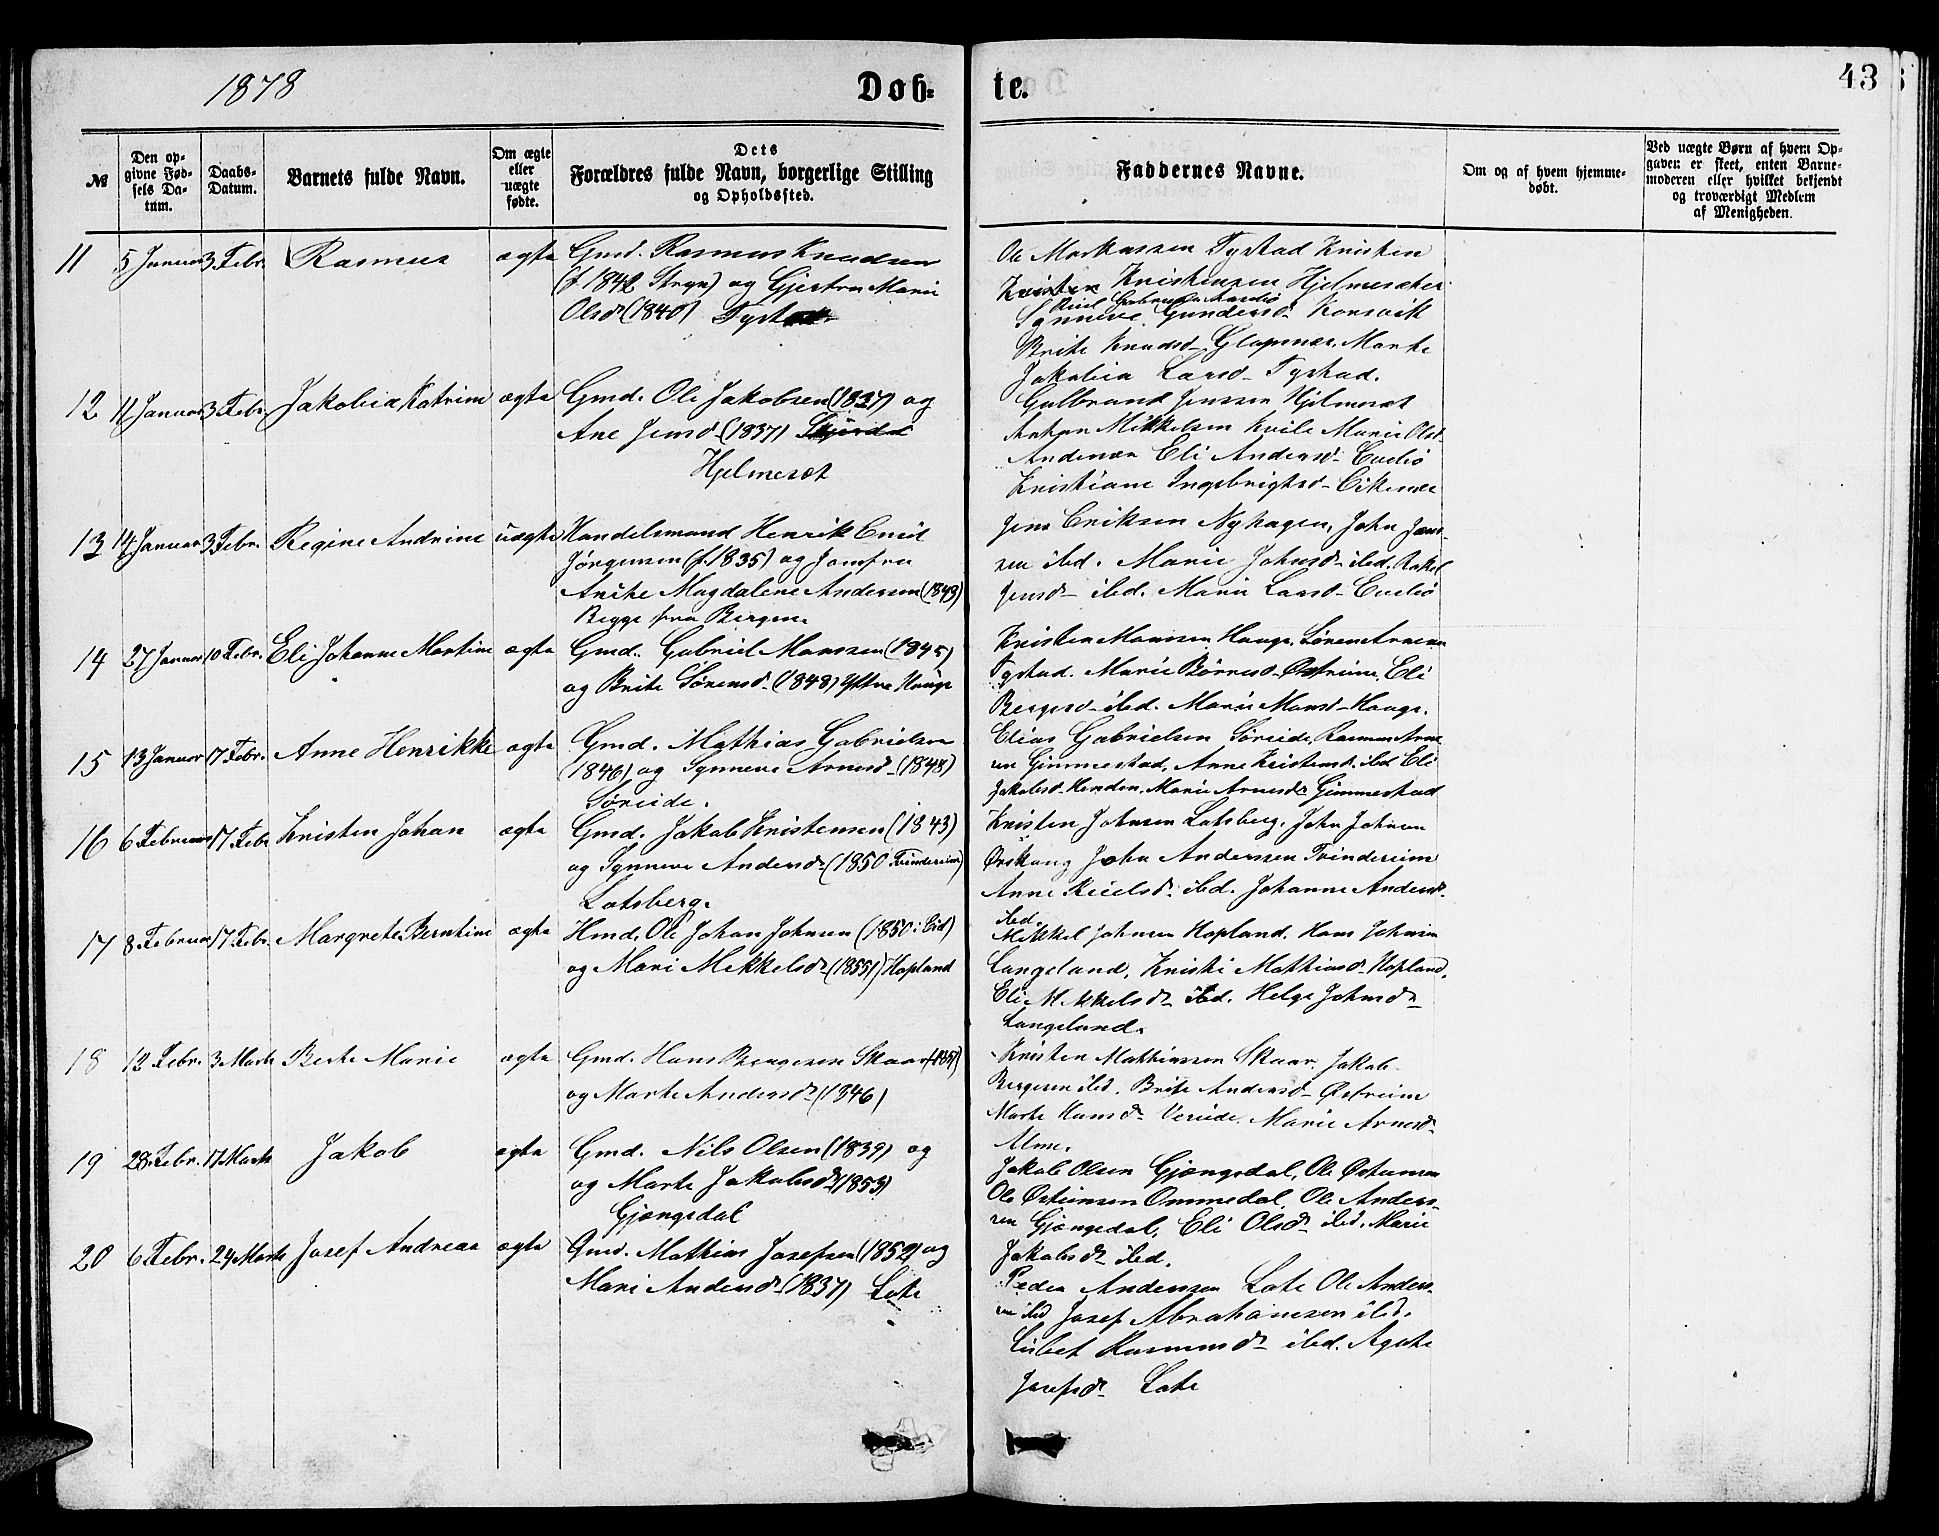 1878
Døb-
te.
43
№
Den op-
givne Fød-
sels Da-
tum.
Daabs-
Datum.
Barnets fulde Navn.
Om ægte
eller
uægte
fødte.
Dets
Forældres fulde Navn, borgerlige Stilling
og Opholdssted.
Faddernes Navne.
Om og af hvem hjemme-
døbt.
Ved uægte Børn af hvem Op-
gaven er skeet, enten Barne-
moderen eller hvilket bekjendt
og troværdigt Medlem
af Menigheden.
11 5 Januar 3 Febr. Rasmus ægte Gmd. Rasmus Knudsen
(f. 1842 Stryn) og Gjertru Marie
Olsd (1840) Tystad
Ole Markussen Tystad Kristen
Kristen Kristensen Hjelmeseter
Synneve Gundersd Korsvik
Brite Knudsd Glapnes, Marte
Jakobia Larsd Tystad.
12 11 Januar 3 Febr. Jakobia Katrine ægte Gmd. Ole Jakobsen (1837) og
Ane Jensd (1837)
Hjelmeset
Gulbrand Jenssen Hjelmeset
Anton Mikkelsen Kvile Marie Olsd
Andenæs Eli Andersd Evebø
Kristiane Ingebrigtsd Eikenes
13 14 Januar 3 Febr. Regine Andrine uægte Handelsmand Henrik Emil
Jørgensen (f. 1835) og Jomfru
Anite Magdalene Andersen (1848)
Begge fra Bergen.
Jens Eriksen Nyhagen, John Jens-
sen ibd. Marie Johnsd ibd. Rakel
Jensd ibd. Marie Larsd Evebø
14 27 Januar 10 Febr. Eli Johanne Martine ægte Gmd. Gabriel Monssen (1845)
og Brite Sørensd (1848) Yttre Hauge
Kristen Monssen Hauge, Søren Arnesen
Tystad. Marie Børresd Østreime, Eli
Bergesd ibd. Marie Monsd Hauge.
15 13 Januar 17 Febr. Anne Henrikke ægte Gmd. Mathias Gabrielsen
(1846) og Synneve Arnesd (1848)
Søreide.
Elias Gabrielsen Søreide, Rasmus Arne
sen Gimmestad, Anne Kristensd ibd Eli
Jakobsd Henden, Marie Arnesd Gimmestad
16 6 Februar 17 Febr. Kristen Johan ægte Gmd. Jakob Kristensen (1843)
og Synneve Andersd (1850 Tvindereim)
Lotsberg.
Kristen Johnsen Lotsberg, John Johnsen
Ørskaug John Anderssen Tvindereim
Anne Reielsd ibd. Johanne Andersd
ibd.
17 8 Februar 17 Febr. Margrete Berntine ægte Hmd. Ole Johan Johnsen (1850 i Eid)
og Mari Mikkelsd (1855) Hopland
Mikkel Johnsen Hopland. Hans Johnsen
Langeland, Kristi Mathiasd Hopland,
Eli Mikkelsd ibd. Helge Johnsd
Langeland.
18 12 Febr. 3 Marts Berte Marie ægte Gmd. Hans Bergesen Skaar
og Marte Andersd (1846)
Kristen Mathiassen Skaar. Jakob
Bergesen ibd. Brite Andersd Østreim
Marte Hansd Vereide, Marie Arnesd
Alme.
19 28 Febr. 17 Marts Jakob ægte Gmd. Nils Olsen (1839) og
og Marte Jakobsd (1853)
Gjengedal
Jakob Olsen Gjengedal, Ole Østensen
Ole Østensen Ommedal, Ole Anders-
sen Gjengedal, Eli Olsd ibd. Marie
Jakobsd ibd.
20 6 Febr. 24 Marts Josef Andreas ægte Gmd. Mathias Josefsen (1852) og
Mari Andersd (1837) Lote
Peder Anderssen Lote Ole Anders-
sen ibd Josef Abrahamsen ibd.
Lisbet Rasmusd ibd. Agate
Josefsd Lote